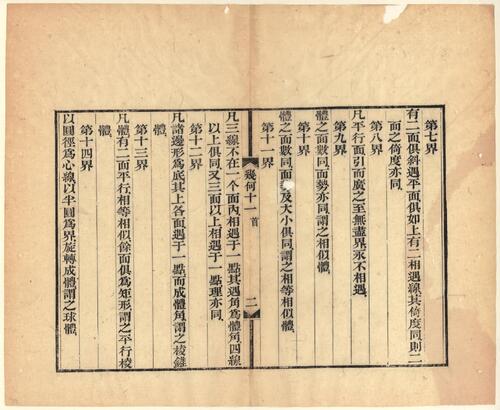 第七界
有二面俱斜遇平面俱如上有二相遇線其倚度同則二
面之倚度亦同
第八界
凡平行面引而廣之至無盡界永不相遇
第九界
體之面數同面勢亦同謂之相似體
第十界
體之面數同面 及大小俱同謂之相等相似體
第十一界
幾何十一 首 二
凡三線不在一个面內相遇于一點其遇角為體角四線
以上俱同又三面以上相遇于一點理亦同
第十二界
凡諸邊形為底其上各面遇于一點而成體角謂之棱錐
體
第十三界
凡體有二面平行相等相似餘面俱為矩形謂之平行棱
體
第十四界
以圓徑為心線以半圓為界旋轉成體謂之球體